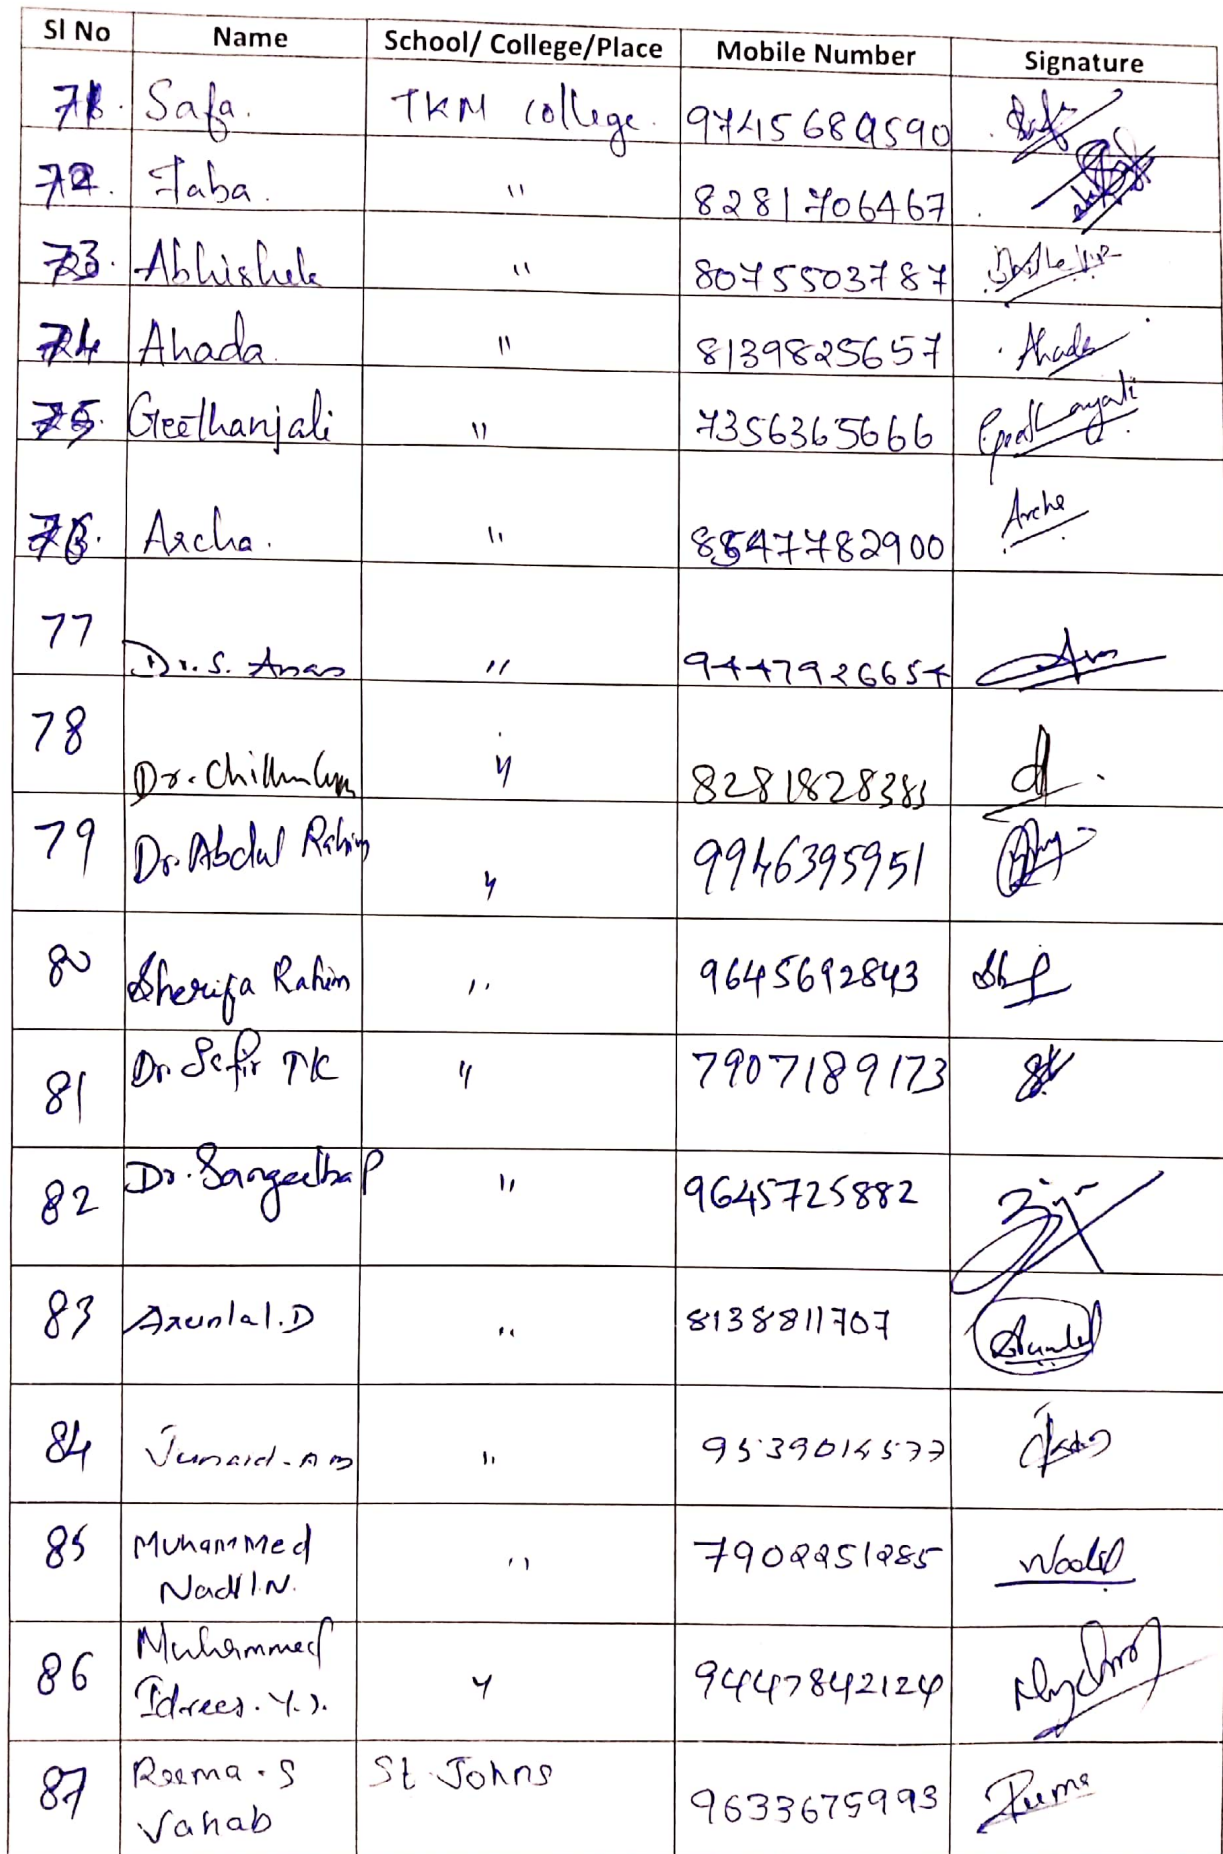 Sl No Name School/ College/Place Mobile Number Signature
71. Safa. TKM College.
72. Faba. " 8281706467
73. Abhishek " 8075503787
74 Ahada " 8139825657 Ahada
75. Geethanjali " 7356365666 Geethanjali
76. Archa. " 8547782900 Archa
77 Dr. S. Anas " 9447926654
78 Dr. "
79 Dr. Abdul Rahim " 9946395951
80 Sherifa Rahim " 9645692843
81 Dr. Sefir TK " 7907189173
82 Dr. Sangeetha P " 9645725882
83 Arunlal.D " 8138811707
84 Junaid. A M " 9539014577
85 Muhammed " 7902251285
Nadil.N.
86 Muhammed " 9447842124
Idrees. Y.S.
87 Reema.S St. Johns 9633675993
Vahab